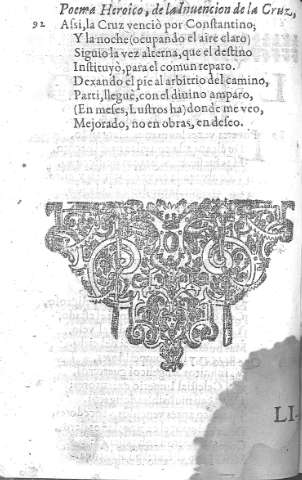 Poema Heroico, de la Inuencion de la Cruz,
92 Assi, la Cruz venciò por Constantino;
Y la noche (ocupando el aire claro)
Siguio la vez alterna, que el destino
Instituyò, para el comun reparo.
Dexando el pie al arbitrio del camino,
Parti, lleguè, con el diuino amparo,
(En meses, Lustros ha) donde me veo,
Mejorado, no en obras, en deseo.
LI-